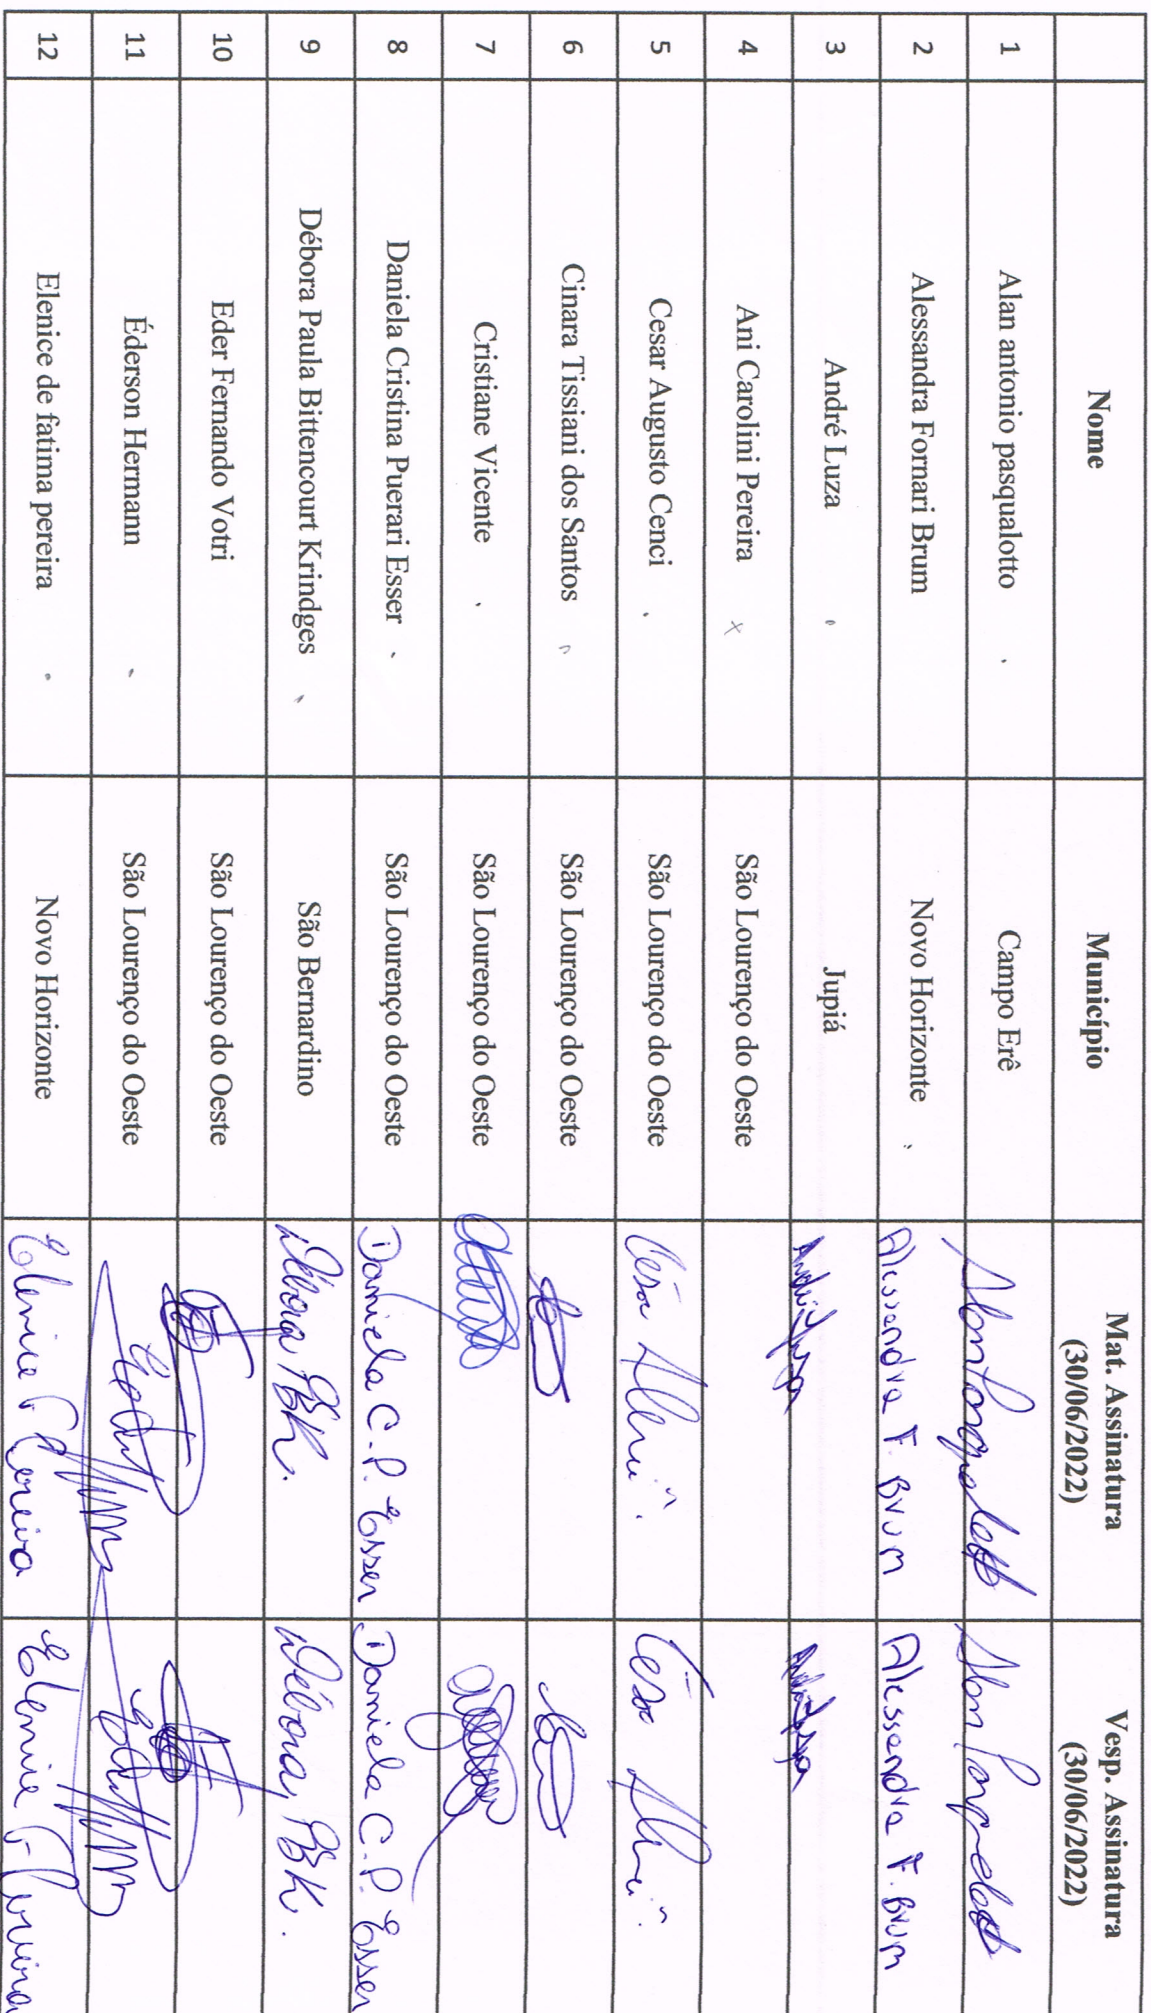 Nome Município Mat. Assinatura Vesp. Assinatura
(30/06/2022) (30/06/2022)
1 Alan antonio pasqualotto Campo Erê
2 Alessandra Fornari Brum Novo Horizonte Alessandra F. Brum Alessandra F. Brum
3 André Luza Jupiá
4 Ani Carolini Pereira x São Lourenço do Oeste
5 Cesar Augusto Cenci São Lourenço do Oeste
6 Cinara Tissiani dos Santos São Lourenço do Oeste
7 Cristiane Vicente São Lourenço do Oeste
8 Daniela Cristina Puerari Esser São Lourenço do Oeste Daniela C. P. Esser Daniela C. P. Esser
9 Débora Paula Bittencourt Krindges São Bernardino Débora PBK. Débora PBK.
10 Eder Fernando Votri São Lourenço do Oeste
11 Éderson Hermann São Lourenço do Oeste
12 Elenice de fatima pereira Novo Horizonte Elenice F. Pereira Elenice F.